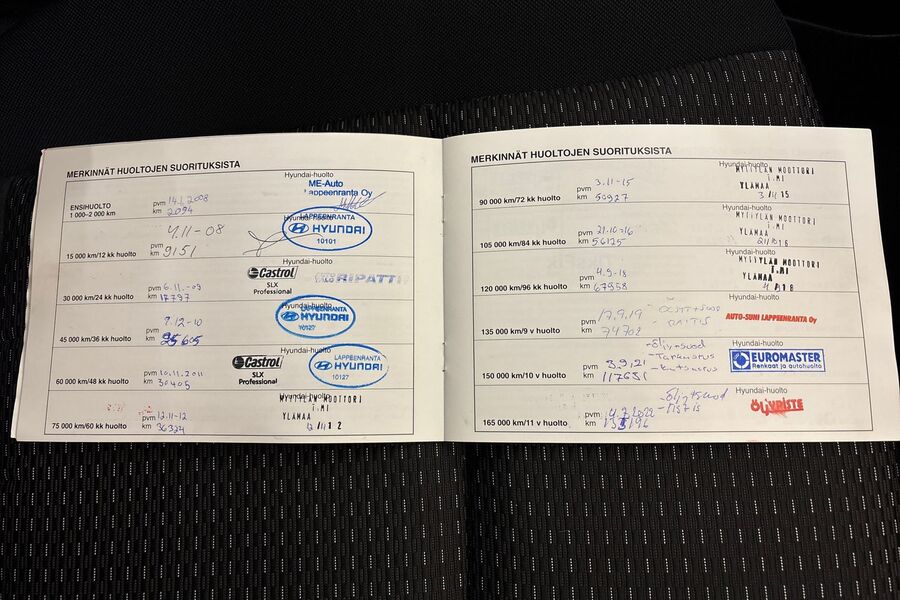 MERKINNÄT HUOLTOJEN SUORITUKSISTA
Hyundai-huolto
ME-Auto
Lappeenranta Oy
ENSIHUOLTO
1 000–2 000 km
pvm 14.1.2008
km 2094
Hyundai-huolto
LAPPEENRANTA
HYUNDAI
10101
4.11-08
pvm
15 000 km/12 kk huolto
km 9151
Hyundai-huolto
Castrol
SLX
Professional
RIPATTI
pvm 6.11.-09
30 000 km/24 kk huolto
km 17797
Hyundai-huolto
HYUNDAI
10127
7.12-10
pvm
45 000 km/36 kk huolto
km 25605
Hyundai-huolto
Castrol
SLX
Professional
LAPPEENRANTA
HYUNDAI
10127
pvm 10.11.2011
60 000 km/48 kk huolto
km 30405
Hyundai-huolto
MYLLYLÄN MOOTTORI
T:MI
YLÄMAA
pvm 12.11-12
75 000 km/60 kk huolto
km 36324
MERKINNÄT HUOLTOJEN SUORITUKSISTA
Hyundai-huolto
MYLLYLÄN MOOTTORI
T:MI
YLÄMAA
pvm 3.11-15
90 000 km/72 kk huolto
km 50927
Hyundai-huolto
MYLLYLÄN MOOTTORI
T:MI
YLÄMAA
pvm 21.10-16
105 000 km/84 kk huolto
km 56125
Hyundai-huolto
MYLLYLÄN MOOTTORI
T:MI
YLÄMAA
pvm 4.9-18
120 000 km/96 kk huolto
km 67958
Hyundai-huolto
AUTO-SUNI LAPPEENRANTA Oy
pvm 17.9.19
135 000 km/9 v huolto
km 74702
Hyundai-huolto
EUROMASTER
Renkaat ja autohuolto
-Öljynsuod
-Tarkastus
pvm 3.9.21
150 000 km/10 v huolto
km 117651
Hyundai-huolto
ÖLJYPISTE
-Öljynsuod
pvm 4.7.2022
165 000 km/11 v huolto
km